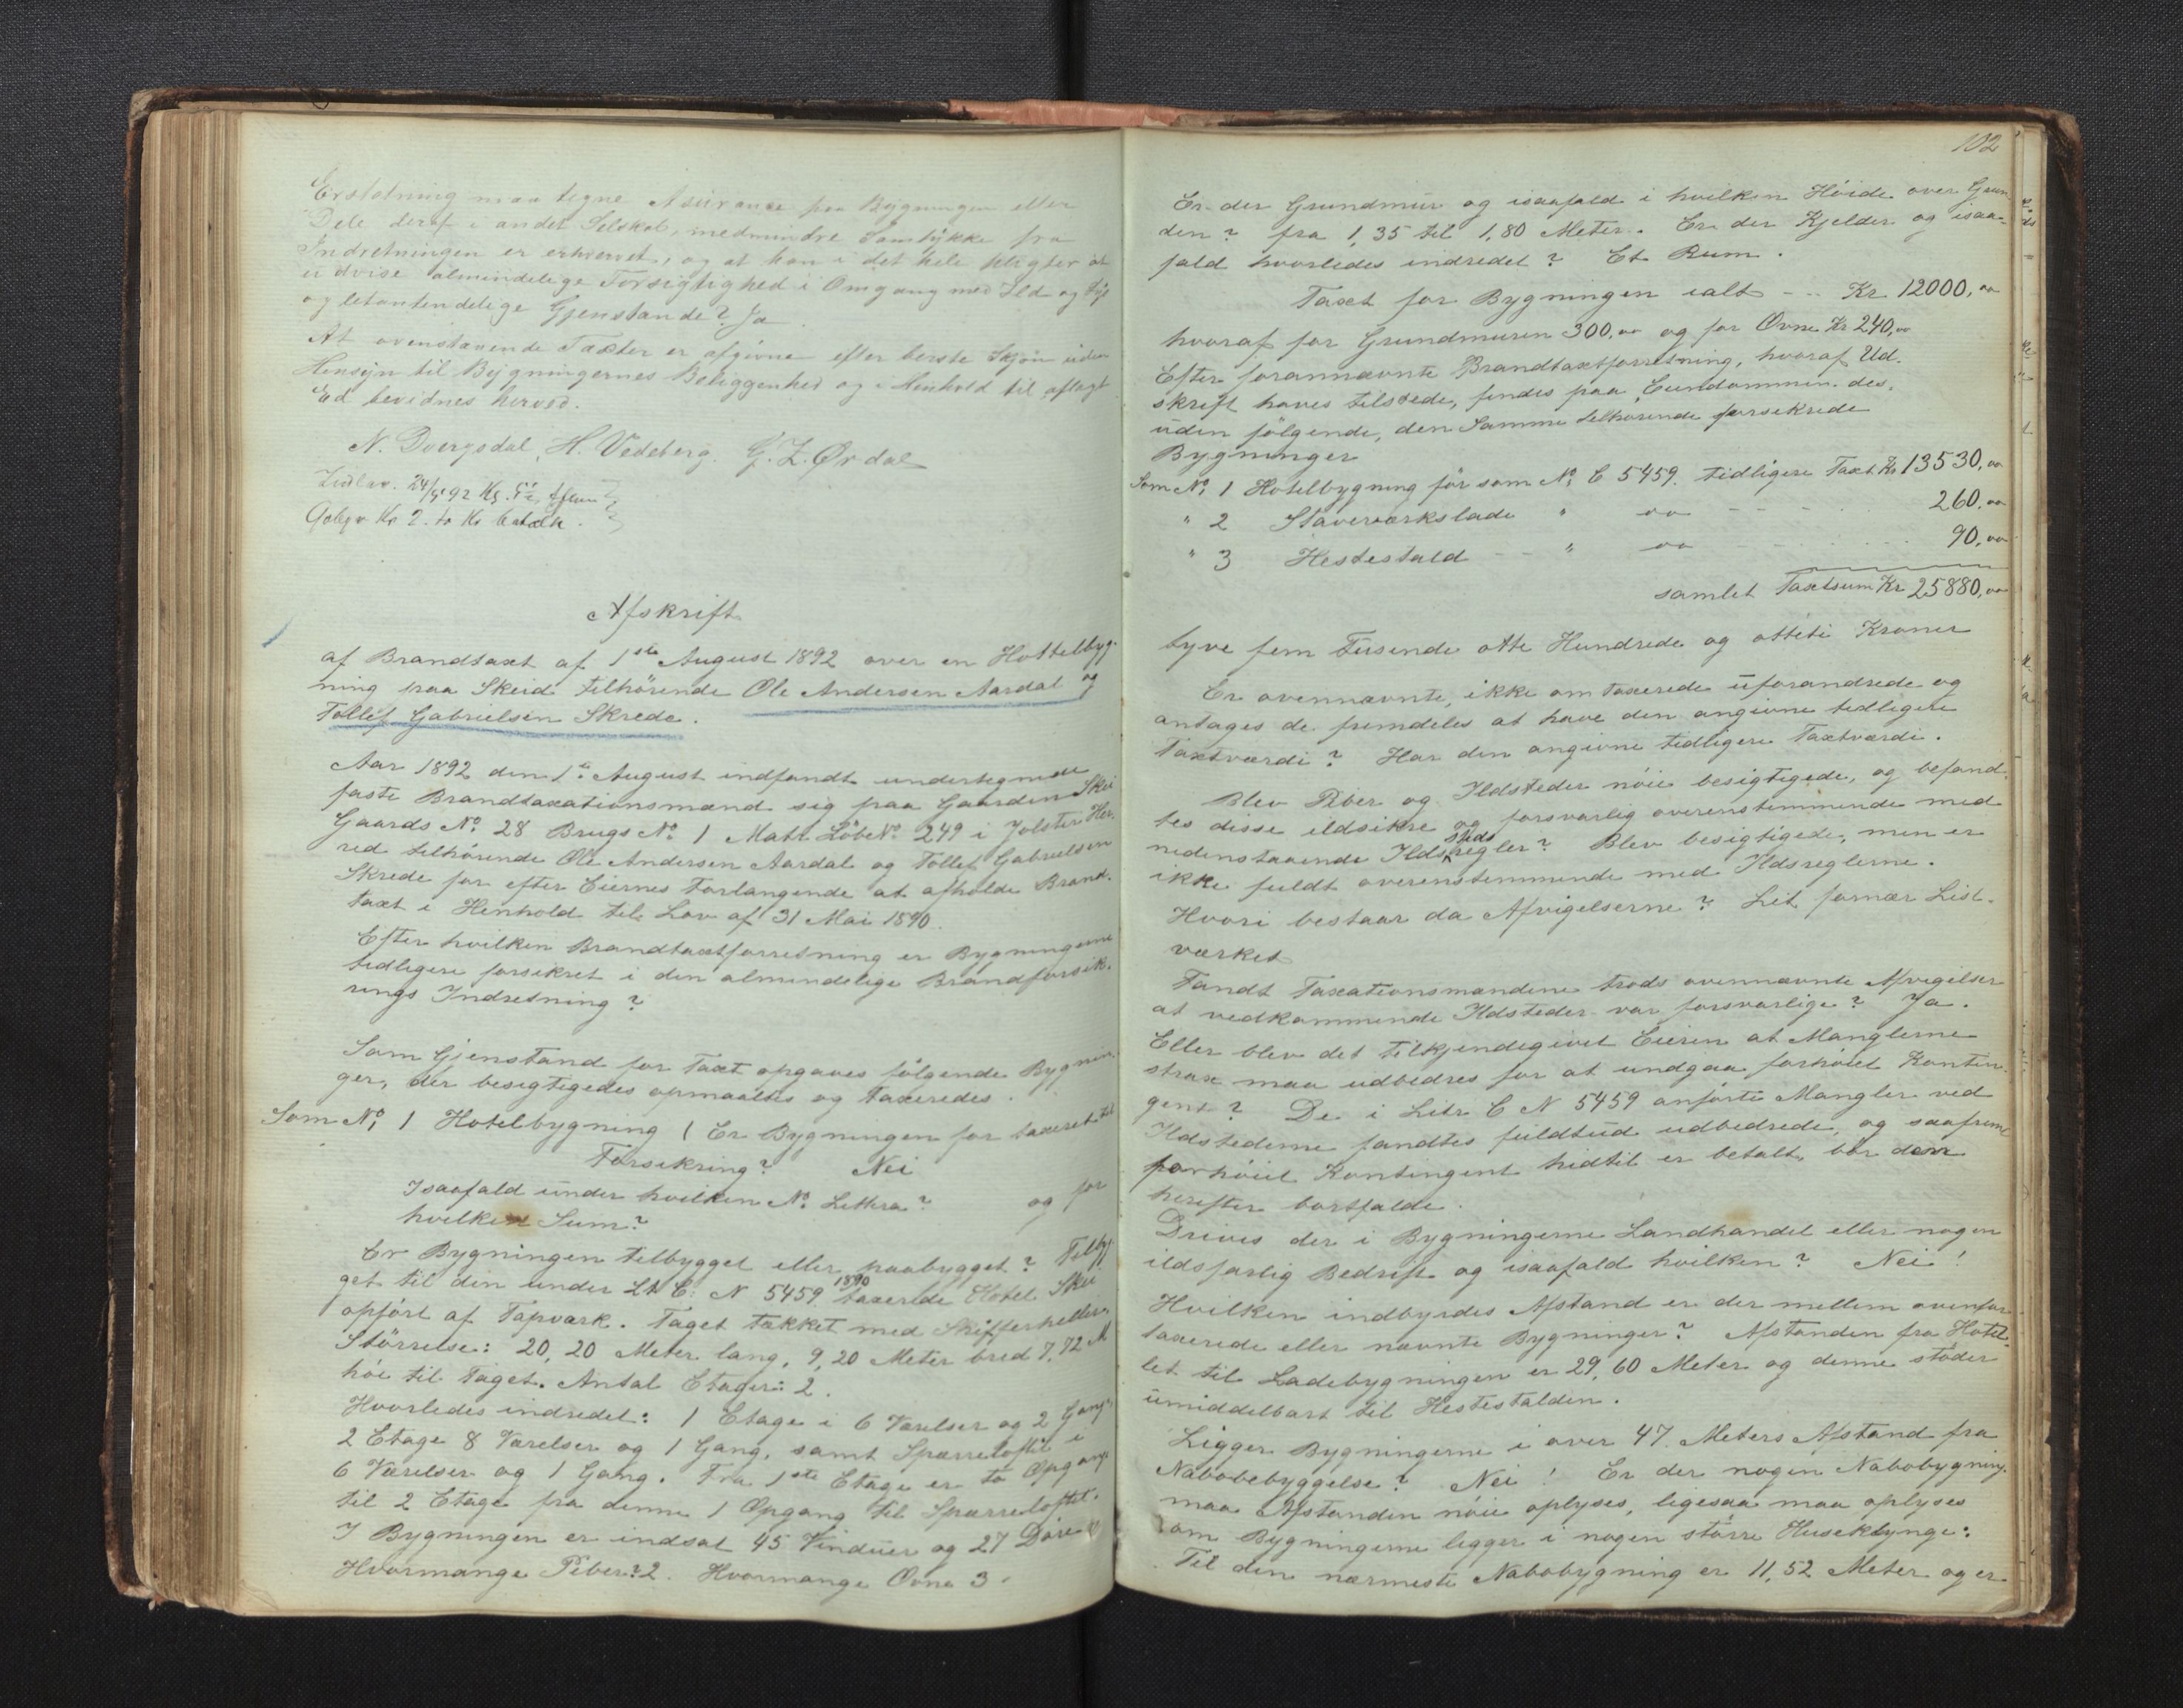 Erstatning maa tegne Assurance paa Bygningen eller
Dele deraf i andet Selskab, medmindre Samtykke fra
Indretningen er erhvervet, og at han i det hele pligter at
udvise almindelige Forsigtighed i Omgang med Ild og Lys
og letantendelige Gjenstande? Ja.
At ovenstaaende Taxter er afgivne efter berste Skjøn uden
Hensyn til Bygningernes Beliggenhed og i Henhold til aflagt
Ed bevidnes herved.
N. Dvergsdal, H. Vedeberg. G. Z. Ørdal
24/5 92
Kr 2.
Afskrift
af Brandtaxt af 1ste August 1892 over en Hottelbyg-
ning paa Skeid tilhörende Ole Andersen Aardal og
Tollef Gabrielsen Skrede.
Aar 1892 den 1te August indfandt undertegnede
faste Brandtaxationsmænd sig paa Gaarden Skei
Gaards No. 28 Brugs No. 1 Matr. Löbe No. 249 i Jolster Her-
red tilhörende Ole Andersen Aardal og Tollef Gabrielsen
Skrede for efter Eiernes Forlangende at afholde Brand-
taxt i Henhold til Lov af 31 Mai 1890.
Efter hvilken Brandtaxtforretning er Bygningerne
tidligere forsikret i den almindelige Brandforsik-
rings Indretning?
Som Gjenstand for Taxt opgaves fölgende Bygnin-
ger, der besigtigedes opmaaltes og taxeredes.
Som No. 1 Hotelbygning ( Er Bygningen før taxeret til
Forsikring? Nei
Isaafald under hvilken No. Littera? og for
hvilken Sum?
Er Bygningen tilbygget eller paabygget? Tilbyg-
get til den under Lt. C. N 5459 1890 taxerede Hotel Skei
opfört af Tapværk. Taget tækket med Skifferheller.
Störrelse: 20,20 Meter lang, 9,20 Meter bred 7,72 M
höi til Taget. Antal Etager: 2.
Hvorledes indredet: 1 Etage i 6 Værelser og 2 Gange,
2 Etage 8 Værelser og 1 Gang, samt Sparreloftet i
6 Værelser og 1 Gang. Fra 1ste Etage er to Opgange
til 2 Etage fra denne 1 Opgang til Sparreloftet.
I Bygningen er indsat 45 Vinduer og 27 Döre
Hvormange Piber? 2. Hvormange Ovne 3.
102
Er der Grundmur og isaafald i hvilken Höide over Grun-
den? fra 1,35 til 1,80 Meter. Er der Kjelder og isaa-
fald hvorledes indredet? Et Rum.
Taxt for Bygningen ialt -- Kr 12000,00
hvoraf for Grundmuren 300,00 og for Ovne Kr 240,00
Efter forannævnte Brandtaxtforretning, hvoraf Ud-
skrift haves tilstede, findes paa Eiendommen des-
uden fölgende, den Samme tilhörende forsikrede
Bygninger
Som No. 1 Hotelbygning för som No. C 5459. tidligere Taxt Kr 13530,00
" 2 Staverværkslade " oo - - - - 260,00
" 3 Hestestald - - " oo - - - - 90,00
samlet Taxtsum Kr 25880,00
tyve fem Tusende otte Hundrede og otteti Kroner
Er ovennævnte, ikke omtaxerede uforandrede og
antages de fremdeles at have den angivne tidligere
Taxtværdi? Har den angivne tidligere Taxtværdi.
Blev Piber og Ildsteder nöie besigtigede, og befand-
tes disse ildsikre og forsvarlig overenstemmende med
nedenstaaende Ildsstedsregler? Blev besigtigede, men er
ikke fuldt overenstemmende med Ildsreglerne.
Hvori bestaar da Afvigelserne? Lit fornær List-
værket
Fandt Taxationsmændene trods ovennævnte Afvigelser
at vedkommende Ildsteder var forsvarlige? Ja.
Eller blev det tilkjendegivet Eieren at Manglerne
strax maa udbedres for at undgaa forhöiet Kontin-
gent? De i Litr C N 5459 anförte Mangler ved
Ildstederne fandtes fuldtud udbedrede, og saafremt
forhöiet Kontingent hidtil er betalt, bör den
herefter bortfalde.
Drives der i Bygningerne Landhandel eller nogen
ildsfarlig Bedrift og isaafald hvilken? Nei!
Hvilken indbyrdes Afstand er der mellem ovenfor
taxerede eller nævnte Bygninger? Afstanden fra Hotel-
let til Ladebygningen er 29,60 Meter og denne stöder
umiddelbart til Hestestalden.
Ligger Bygningerne i over 47 Meters Afstand fra
Nabobebyggelse? Nei! Er der nogen Nabobygning.
maa Afstanden nöie oplyses, ligesaa maa oplyses
om Bygningerne ligger i nogen större Huseklynge:
Til den nærmeste Nabobygning er 11,52 Meter og er